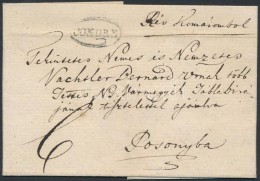 Rév Komáromból
Tekintetes Nemes és Nemzetes
Wachtler Bernárd Urnak több
Ttes N. Vármegyék Táblabirá
jának tisztelettel ajánlva
6
Posonyba